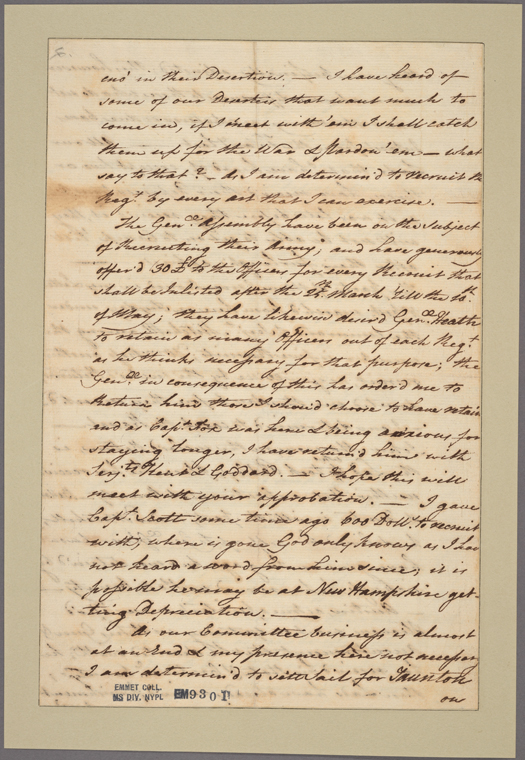 2
ens' in their Desertion. — I have heard of
some of our Deserters that want much to
come in, if I meet with 'em I shall catch
them up for the War & Pardon 'em — what
say to that? — As I am determin'd to recruit the
Reg.t by every art that I can exercise. —
The Gen.l Assembly have been on the subject
of Recruiting their Army; and have generously
offer'd 30£ to the Officers for every Recruit that
shall be Inlisted after the 25th March 'till the 10th
of May; they have likewise desir'd Gen.l Heath
to retain as many Officers out of each Reg.t
as he thinks necessary for that purpose; the
Gen.l in consequence of this has order'd me to
Return him those I shou'd choose to have retain
and as Cap.t Fox was here & being anxious for
staying longer, I have return'd him with
Serj.ts Hunt & Goddard. — I hope this will
meet with your approbation. — I gave
Cap.t Scott some time ago 600 Doll.s to recruit
with; where is gone God only knows as I have
not heard a word from him since; it is
possible he may be at New Hampshire get-
ting Depreciation. —
As our Committee business is almost
at an End & my presence here not necessary
I am determin'd to sett sail for Taunton
on
EMMET COLL.
MS DIV. NYPL
EM9301